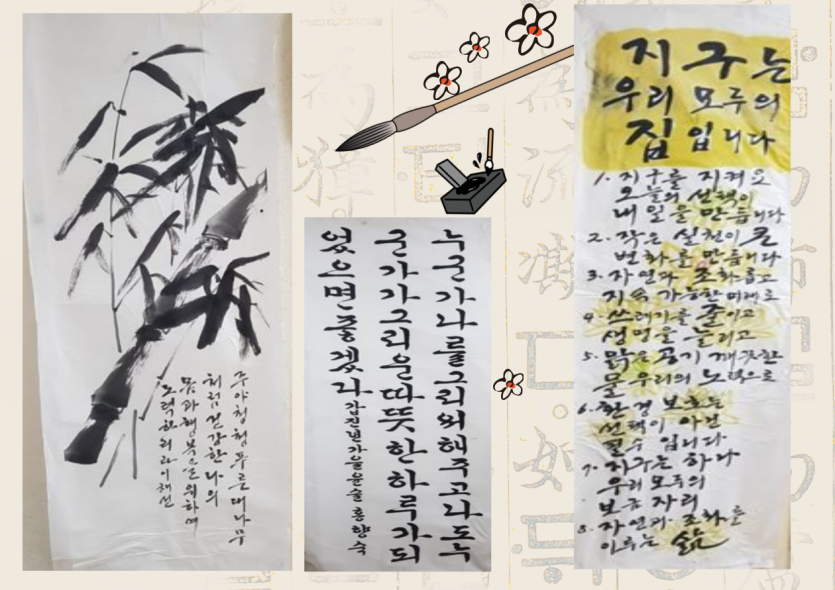 주야청청 푸른대나무
처럼 건강한 나의
몸과 행복을 위하여
노력하리라 이채선
누군가 나를 그리워해주고 나도 누
군가가 그리운 따뜻한 하루가 되
었으면 좋겠다 갑진년 가을 홍향숙
지구는
우리 모두의
집입니다
1. 지구를 지켜요
오늘의 선택이
내일을 만듭니다
2. 작은 실천이 큰
변화를 만듭니다
3. 자연과 조화롭고
지속 가능한 미래로
4. 쓰레기를 줄이고
생명을 늘리고
5. 맑은 공기 깨끗한
물 우리의 노력으로
6. 환경 보호는
선택이 아닌
필수 입니다
7. 지구는 하나
우리 모두의
보금자리
8. 자연과 조화를
이루는 삶